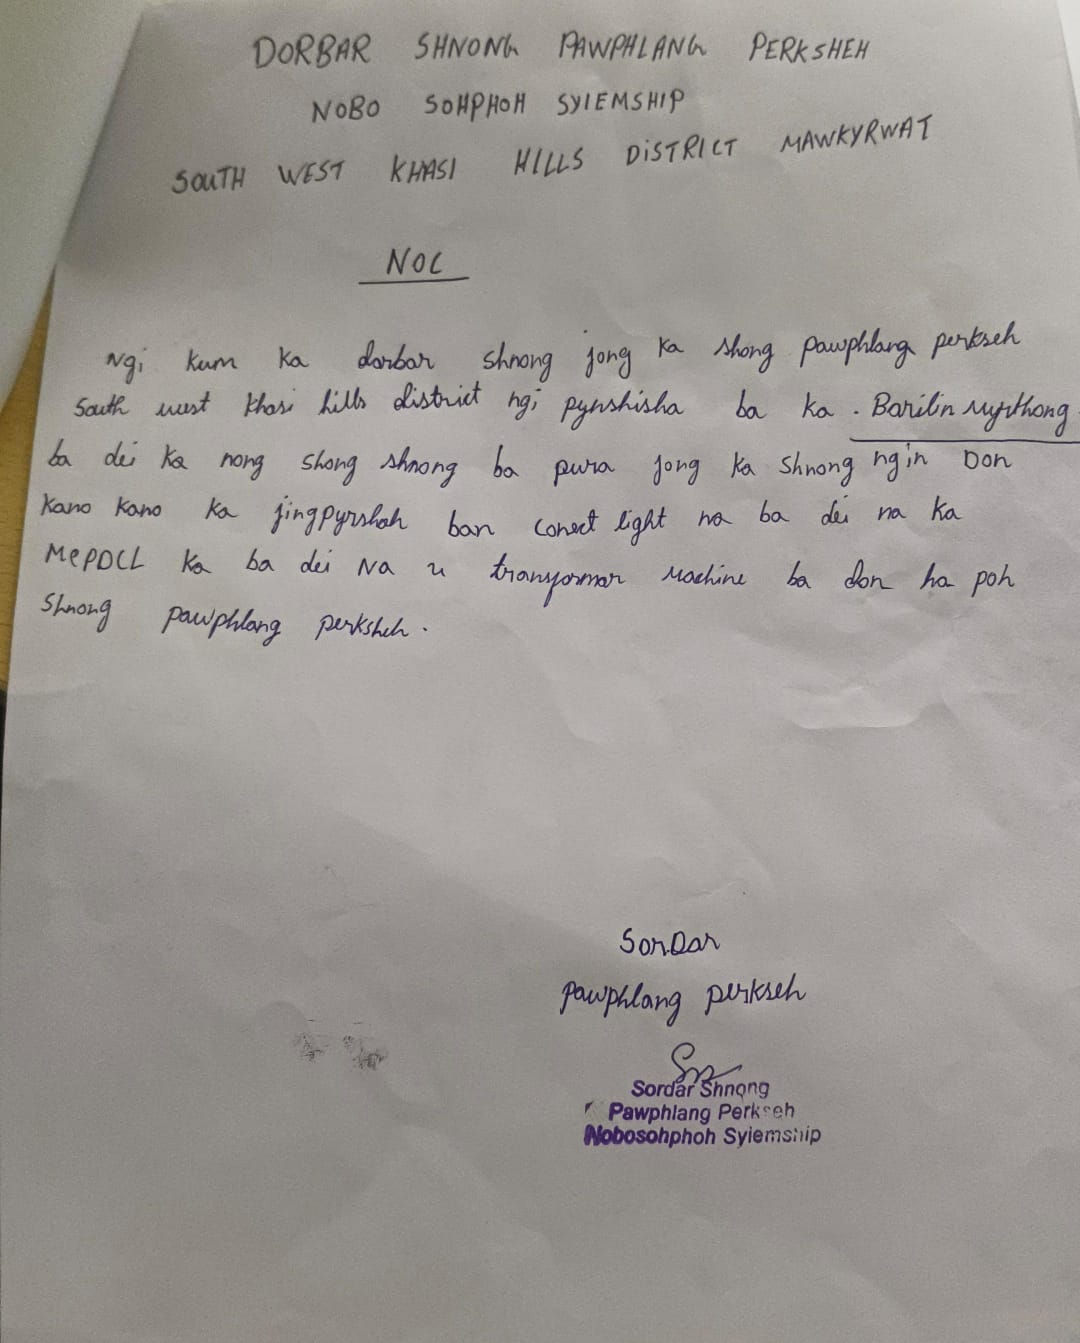 DORBAR SHNONG PAWPHLANG PERKSHEH
NOBO SOHPHOH SYIEMSHIP
SOUTH WEST KHASI HILLS DISTRICT MAWKYRWAT
NOC
Ngi kum ka dorbar shnong jong ka shong pawphlang perkseh
South west khasi hills district ngi pynshisha ba ka . Barilin
ba dei ka nong shong shnong ba pura jong ka shnong ngin Don
Kano kano ka jingpyrshah ban conect light na ba dei na ka
MePDCL ka ba dei Na u transformar machine ba don ha poh
Shnong pawphlang perksheh .
SorDar
pawphlang perkseh
Sordar Shnong
Pawphlang Perkseh
Nobosohphoh Syiemship